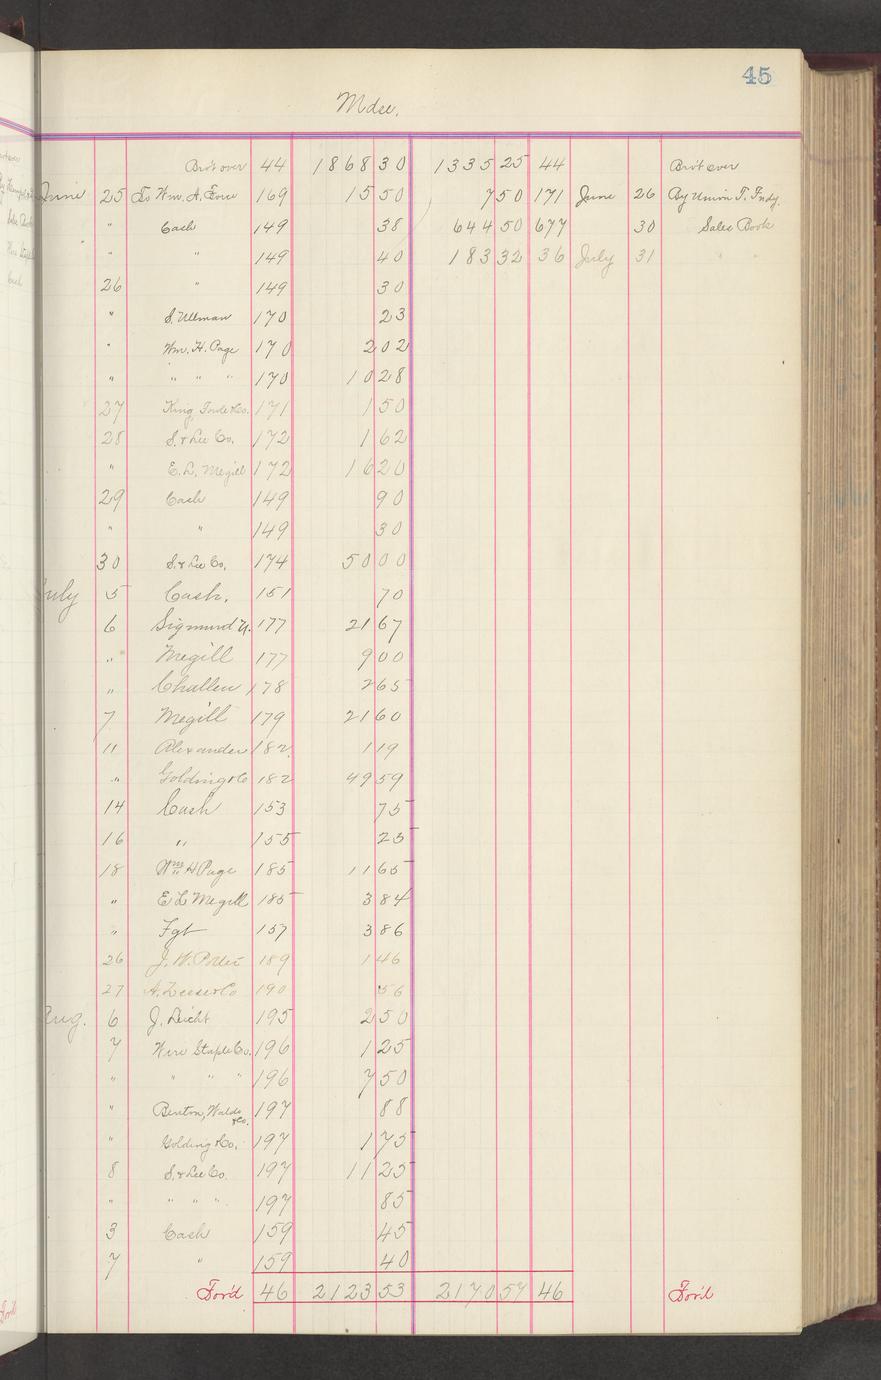 45
Mdse.
Bro't over 44 1868 30 1335 25 44 Bro't over
June 25 To Wm. A. Force 169 15 50 7 50 171 June 26 By Union T. Fndy.
" Cash 149 38 644 50 677 30 Sales Book
" " 149 40 183 32 36 July 31 " "
26 " 149 30
" S. Ullman 170 23
" Wm. H. Page 170 2 02
" " " " 170 10 28
27 King, Fowle & Co. 171 1 50
28 S. & Lee Co. 172 1 62
" E. L. Megill 172 16 20
29 Cash 149 90
" " 149 30
30 S. & Lee Co. 174 50 00
July 5 Cash. 151 70
6 Sigmund U. 177 21 67
" Megill 177 9 00
" Challen 178 2 65
7 Megill 179 21 60
11 Alexander 182 1 19
" Golding & Co 182 49 59
14 Cash 153 75
16 " 155 25
18 Wm H Page 185 11 65
" E L Megill 185 3 84
" Fgt 157 3 86
26 J. W. 189 1 46
27 A. & Co 190 56
Aug. 6 J. Leicht 195 2 50
7 Wire Staple Co. 196 1 25
" " " " 196 7 50
" Benton, Waldo & Co. 197 88
" Golding & Co. 197 1 75
8 S. & Lee Co. 197 11 25
" " " " 197 85
3 Cash 159 45
7 " 159 40
For'd 46 2123 53 2170 57 46 For'd